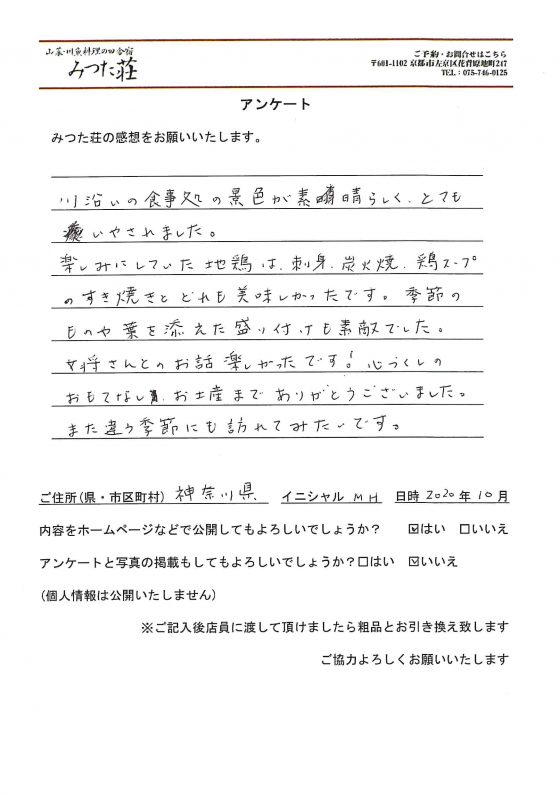 山菜・川魚料理の田舎宿
みつた荘
ご予約・お問合せはこちら
〒601-1102 京都市左京区花脊原地町247
TEL：075-746-0125
アンケート
みつた荘の感想をお願いいたします。
川沿いの食事処の景色が素晴らしく、とても
いやされました。
楽しみにしていた地鶏は、刺身、炭火焼、鶏スープ
のすき焼きとどれも美味しかったです。季節の
ものや葉を添えた盛り付けも素敵でした。
女将さんとのお話楽しかったです！心づくしの
おもてなし、お土産までありがとうございました。
また違う季節にも訪れてみたいです。
ご住所(県・市区町村) 神奈川県 イニシャル MH 日時 2020年10月
内容をホームページなどで公開してもよろしいでしょうか？ ☑はい □いいえ
アンケートと写真の掲載もしてもよろしいでしょうか？□はい ☑いいえ
(個人情報は公開いたしません)
※ご記入後店員に渡して頂けましたら粗品とお引き換え致します
ご協力よろしくお願いいたします